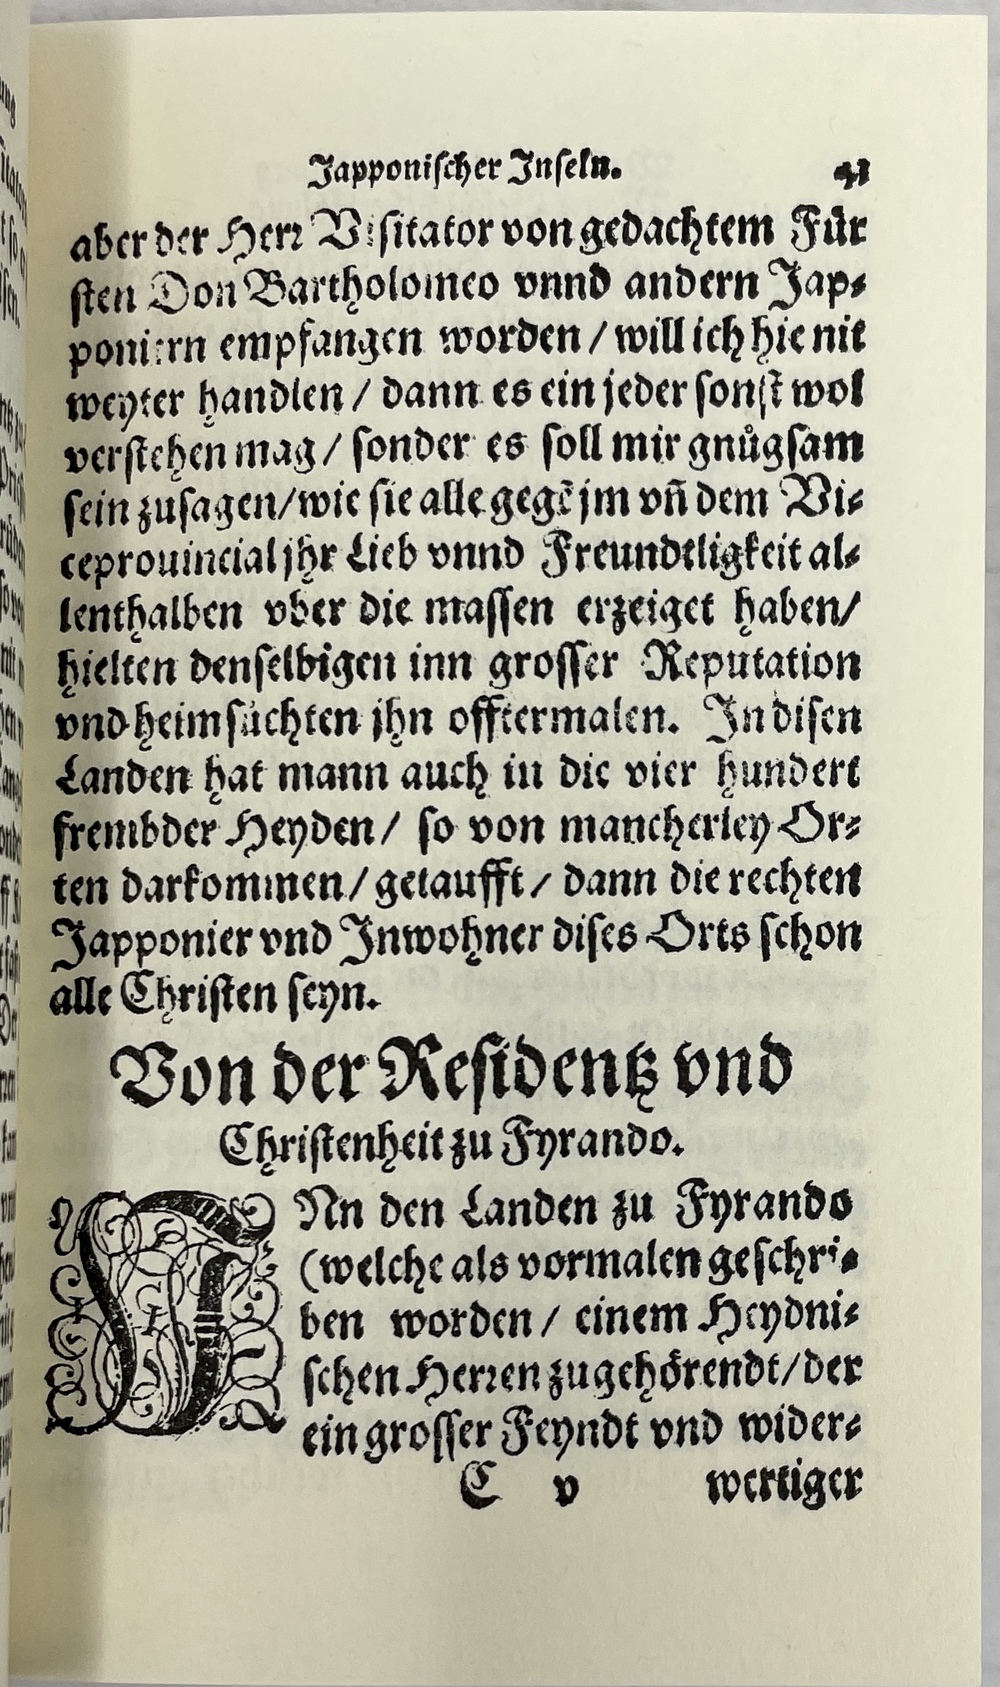 Japponischer Inseln. 41
aber der Herr Visitator von gedachtem Für
sten Don Bartholomeo vnnd andern Jap-
poniern empfangen worden / will ich hie nit
weyter handlen / dann es ein jeder sonst wol
verstehen mag / sonder es soll mir gnůgsam
sein zusagen/wie sie alle gegē jm vñ dem Vi-
ceprouincial jhr Lieb vnnd Freundtligkeit al-
lenthalben vber die massen erzeiget haben/
hielten denselbigen inn grosser Reputation
vnd heimsůchten jhn offtermalen. In disen
Landen hat mann auch in die vier hundert
frembder Heyden / so von mancherley Or-
ten darkommen / getaufft / dann die rechten
Japponier vnd Inwohner dises Orts schon
alle Christen seyn.
Von der Residentz vnd
Christenheit zu Fyrando.
INn den Landen zu Fyrando
(welche als vormalen geschri-
ben worden / einem Heydni-
schen Herren zugehörendt/der
ein grosser Feyndt vnd wider-
C v wertiger